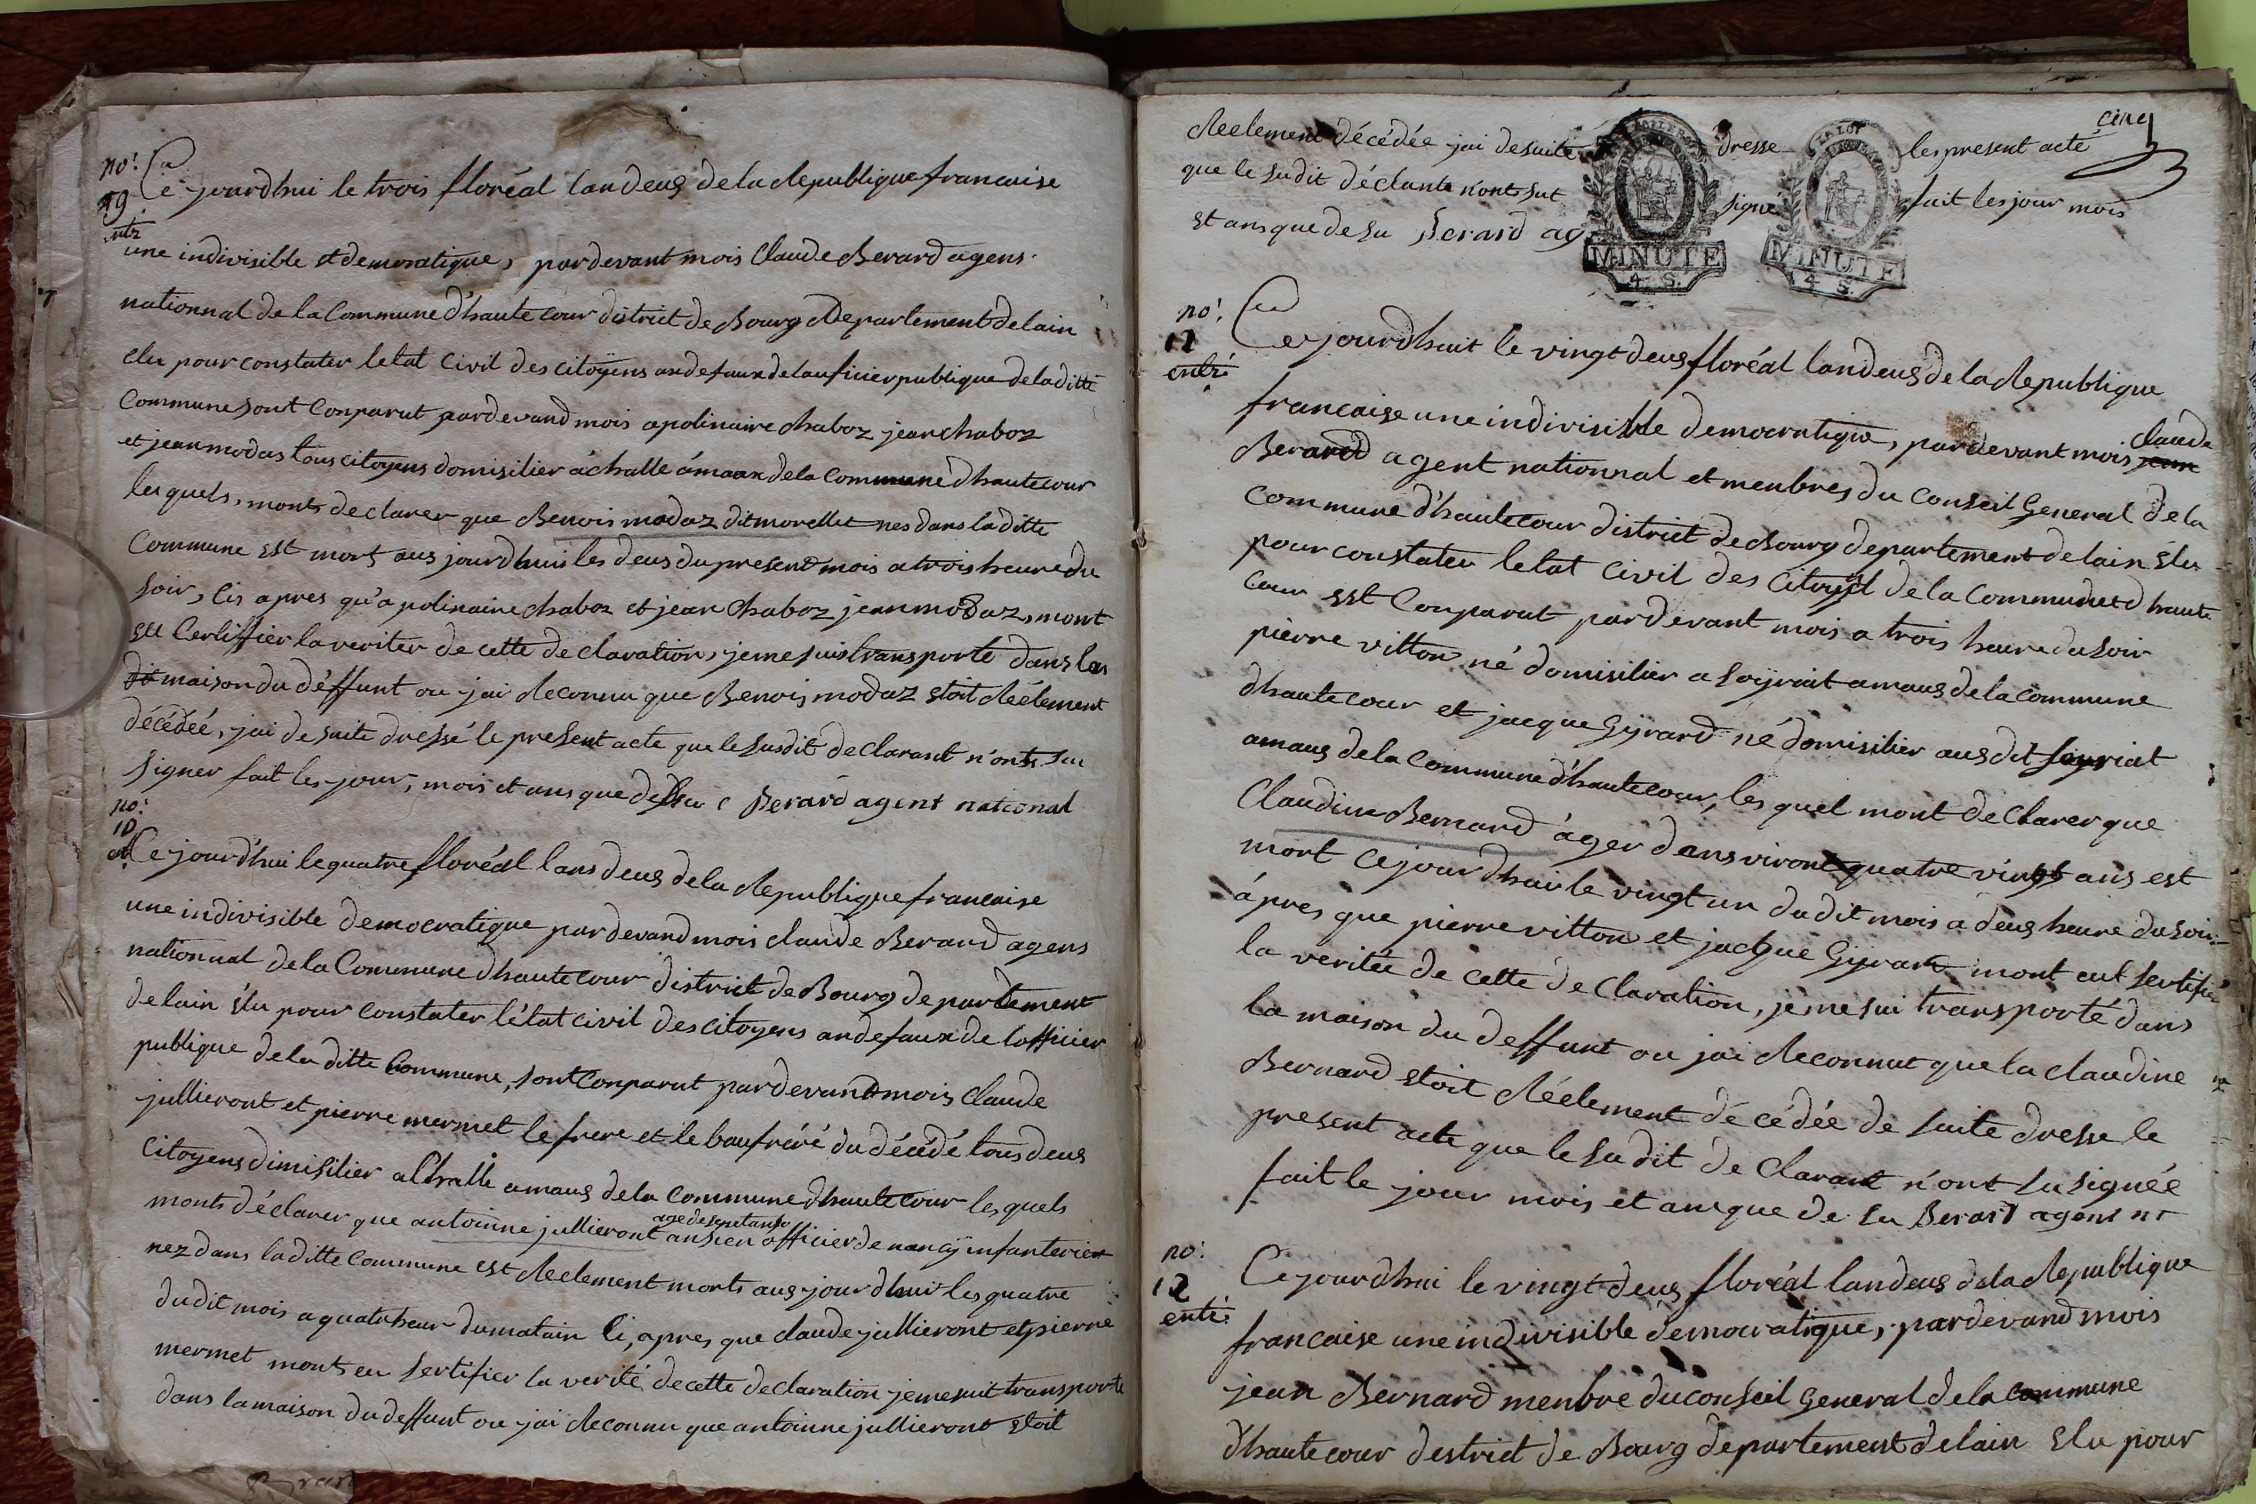 no.
9
entr
Ce jourdhui le trois floréal landeus de la Republique francaise
une indivisible et democratique, pardevant mois Claude Berard agens
nationnal de la Commune dhaute cour district de Bourg Departement de lain
elu pour constater letat Civil des Citoÿens au defaux de laufisier publique de la ditte
Commune sont Conparut pardevand mois apolinaire chaboz jean chaboz
et jean modas tous citoyens domisilier á challe ámaux de la Commune dhaute cour
les quels, monts declarer que Benois modaz dit morellet nes dans la ditte
Commune est mort aus jourdhuis les deus du presend mois a trois heure du
soir, Cis apres qu'apolinaire chaboz et jean chaboz jean modaz, mont
eu Certiffier la veriter de cette declaration, je me suis transporte dans la
dit maison du déffunt ou jai Reconnu que Benois modaz étoit Réélement
décédeé, jai de suite dressé le present acte que le susdit declarant n'onts su
signer fait les jour, mois et ans que dessu C Berard agent national
no.
10
Ce jourd'hui le quatre floréal lans deus de la Republique francaise
une indivisible democratique pardevand mois claude Berard agens
nationnal de la Commune dhaute cour district de Bourg departement
de lain élu pour constater létat civil des citoyens au defaux de lofficier
publique de la ditte Commune, sont Conparut pardevand mois Claude
jullieront et pierre mermet le frere et le baufréré du décédé tous deus
Citoyens dimisilier a Challe amaus de la Commune dhaute cour les quels
monts déclarer que antoinne jullieront ansien officier de nancÿ infanterie
age de septante
nez dans la ditte Commune est Reelement morts aus jourdhuis les quatre
du dit mois a quatr heur du matain Ci, apres que claude jullieront et pierre
mermet monts eu sertifier la verité de cette declaration je me suit transporte
dans la maison du deffunt ou jai Reconnu que antoinne jullieront étoit
cinq
Reelement décédée jai de suite dresse les present acté
que le sudit déclants n'onts sut signé fait les jour mois
et ans que de su Berard ag
MINUTE
4 S.
LA LOI
MINUTE
4 S.
no.
11
entré
Ce jourdhuit le vingt deus floréal landeus de la Republique
francaise une indivisible democratique, pardevant mois jean
claude
Berard agent nationnal et menbres du Conseil General de la
Commune d'haute cour district de Bourg departement de lain élu
pour constater letat civil des Citoyes de la Commune dhaute
cour est Conparut pardevant mois a trois heure du soir
pierre vitton né domisilier a soÿriat amaus de la commune
dhaute cour et jacque Gÿrard né domisilier aus dit soyriat
amaus de la Commune d'haute cour, les quel mont declarer que
Claudine Bernard áger dansviront quatre vingt ans est
mort Ce jourdhuit le vingt un du dit mois a deus heure du soir
ápres que pierre vitton et jacque Gÿrard mont eut sertifié
la veritée de cette declaration, je me sui transporté dans
la maison du deffunt ou jai Reconnut que la claudine
Bernard étoit Réélement décédée de suite dresse le
present acte que le sudit declarant n'ont su signéé
fait le jour mois et an que de su Berard agent n
no.
12
entré
Ce jourdhui le vingt deus floréal landeus de la Republique
francaise une indivisible democratique, pardevand mois
jean Bernard menbre du conseil General de la commune
dhaute cour destrict de Bourg departement de lain élu pour